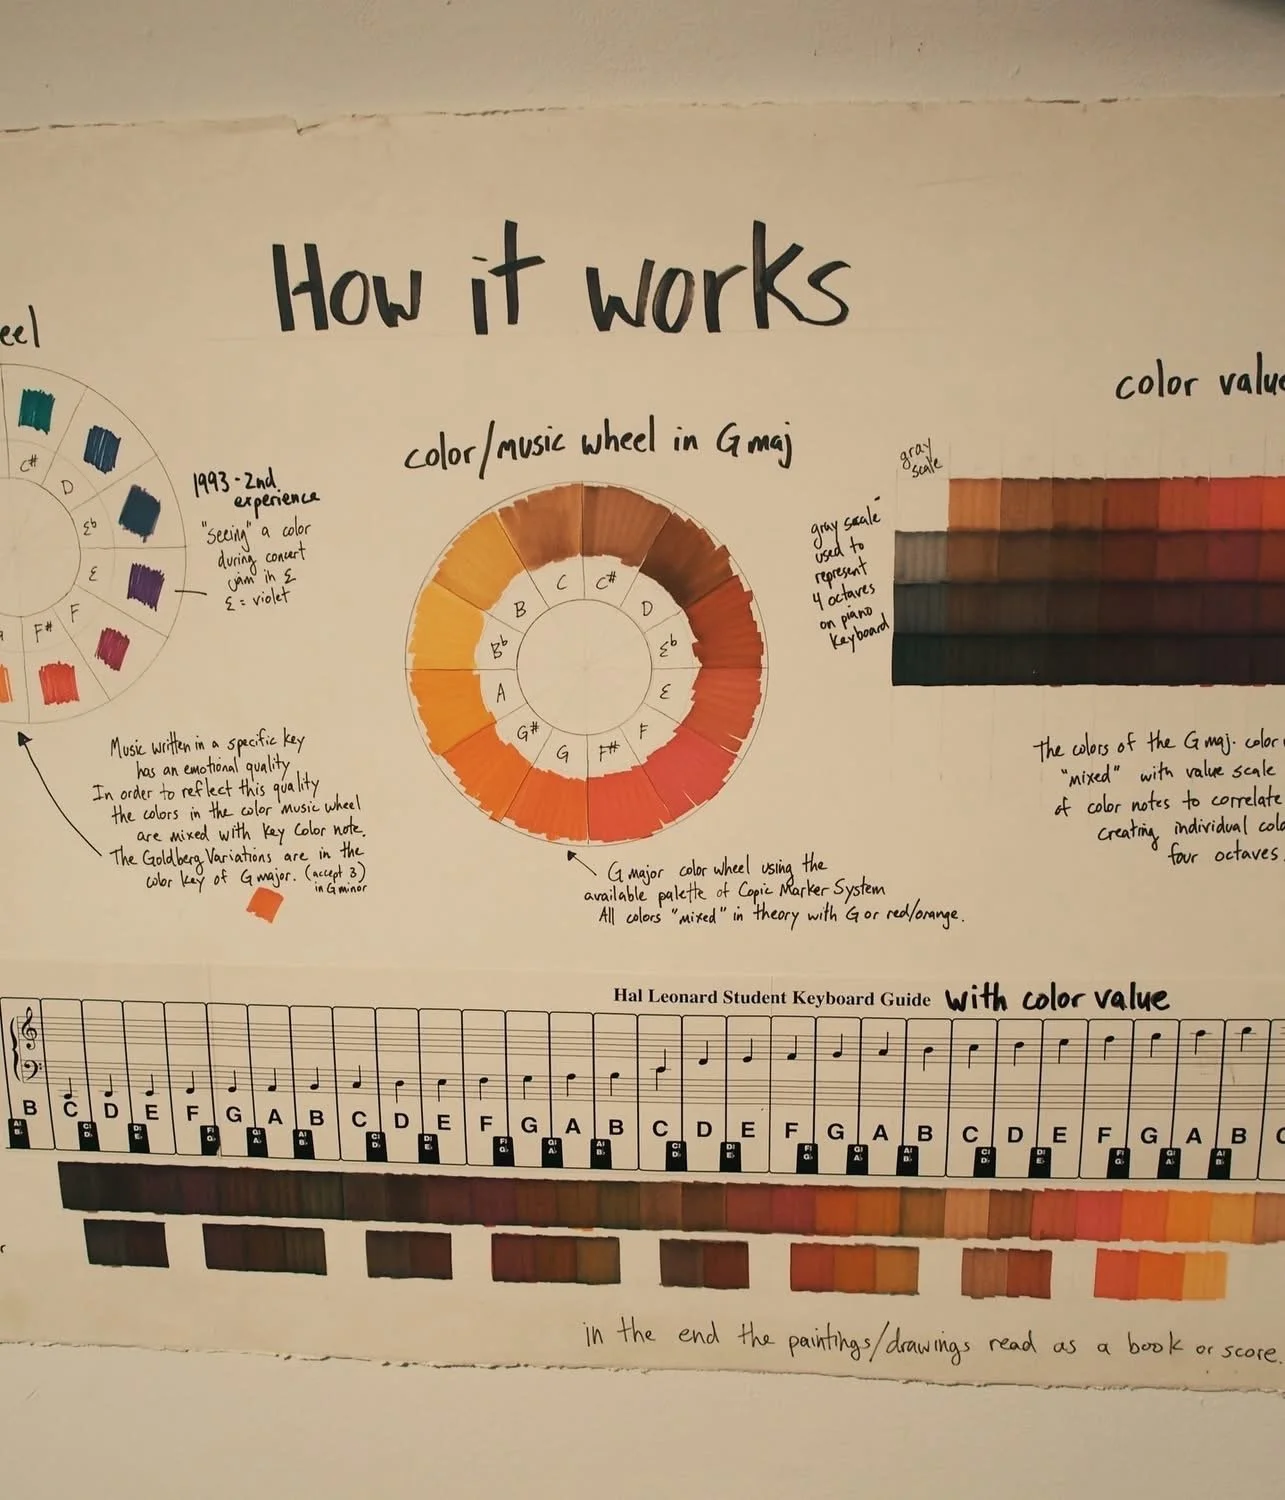 How it works
eel
C#
D
Eb
E
F
F#
1993 - 2nd
experience
"seeing" a color
during concert
jam in E
E = violet
Music written in a specific key
has an emotional quality
In order to reflect this quality
the colors in the color music wheel
are mixed with key color note.
The Goldberg Variations are in the
color key of G major. (accept 3)
in G minor
color/music wheel in G maj
C
C#
D
Eb
E
F
F#
G
G#
A
Bb
B
G major color wheel using the
available palette of Copic Marker System
All colors "mixed" in theory with G or red/orange.
color value
gray
scale
gray scale
used to
represent
4 octaves
on piano
keyboard
The colors of the G maj. color
"mixed" with value scale
of color notes to correlate
creating individual colo
four octaves.
Hal Leonard Student Keyboard Guide with color value
B C D E F G A B C D E F G A B C D E F G A B C D E F G A B C
in the end the paintings/drawings read as a book or score.